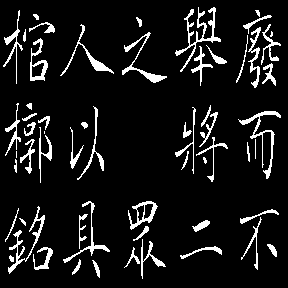 廢而不
舉將二
之眾
人以具
棺槨銘